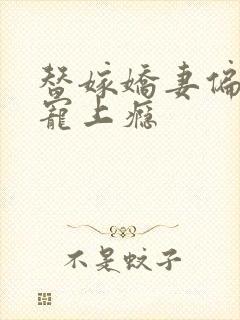 替嫁嬌妻偏
寵上癮
不是蚊子